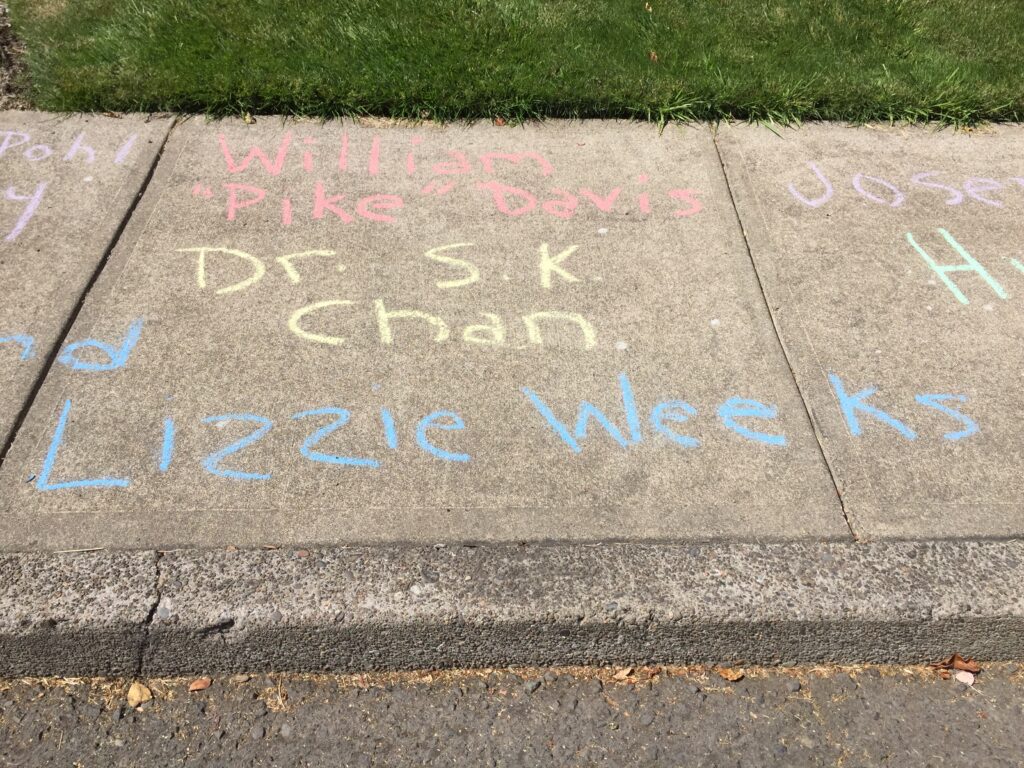 Pohl
y
William
"Pike" Davis
Dr. S. K.
Chan.
nd
Lizzie Weeks
Jose
H